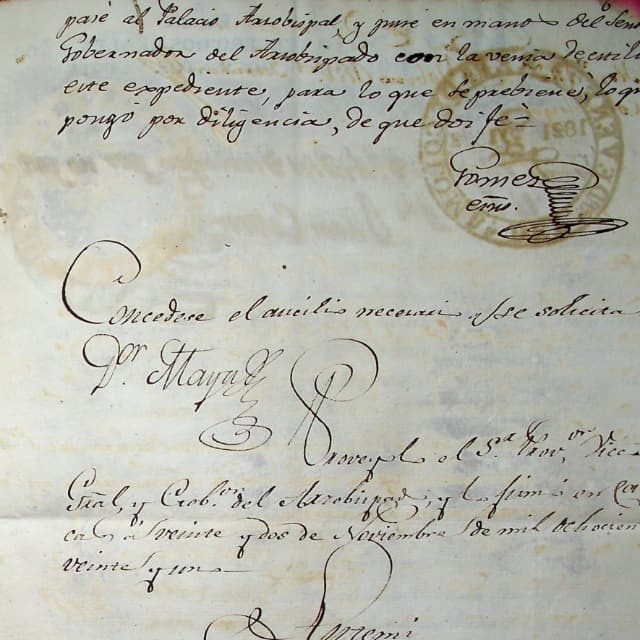 pasé al Palacio Arzobispal, y puse en manos del Señor
Gobernador del Arzobispado con la venia de estilo
este expediente, para lo que se prebiene, lo que
pongo por diligencia, de que doi fé =
Gomez
Concedese el aucilio necesario y se solicita
Dor. Maya
Proveyolo el Sr. Provor. Vica
Gral, y Gobor. del Arzobispado, y lo firmó en Cara
cas á veinte y dos de Noviembre de mil ochocien
veinte y uno
Antemi
1821